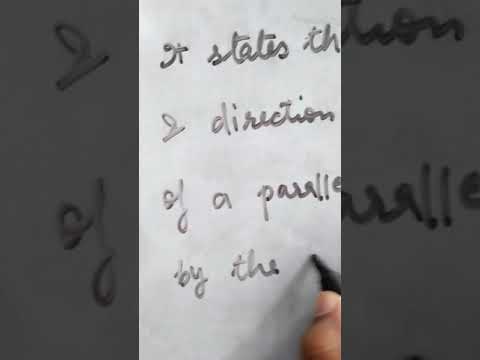 It states th
& direction
of a paralle
by the